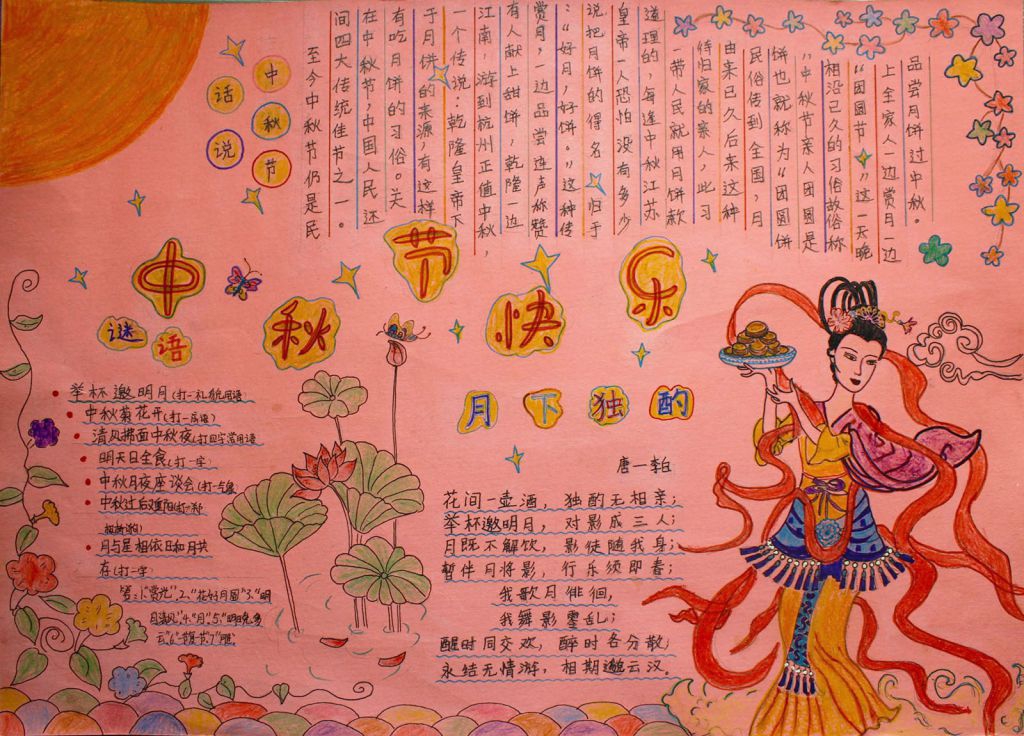 中秋节
话说
至今中秋节仍是民
间四大传统佳节之一。
在中秋节，中国人民还
有吃月饼的习俗。关
于月饼的来源，有这样
一个传说：乾隆皇帝下
江南，游到杭州正值中秋，
有人献上甜饼，乾隆一边
赏月，一边品尝连声称赞
：“好月，好饼。”这种传
说把月饼的得名归于
皇帝一人恐怕没有多少
道理的，每逢中秋江苏
一带人民就用月饼款
待归家的亲人，此习
由来已久后来这种
民俗传到全国，月
饼也就称为“团圆饼
”中秋节亲人团圆是
相沿已久的习俗故俗称
“团圆节”这一天晚
上全家人一边赏月一边
品尝月饼过中秋。
中秋节快乐
谜语
举杯邀明月(打一礼貌用语
中秋菊花开(打一成语)
清风拂面中秋夜(打四字常用语
明天日全食(打一字)
中秋月夜座谈会(打一气象
中秋过后又重阳(打一
月与星相依日和月共
存(打一字)
答：1“赏光”2、“花好月圆”3、“明
月清风”4、“月”5、“明晚多
云”6、7“腥”
月下独酌
唐一李白
花间一壶酒，独酌无相亲；
举杯邀明月，对影成三人；
月既不解饮，影徒随我身；
暂伴月将影，行乐须即春；
我歌月徘徊，
我舞影零乱；
醒时同交欢，醉时各分散；
永结无情游，相期邈云汉。